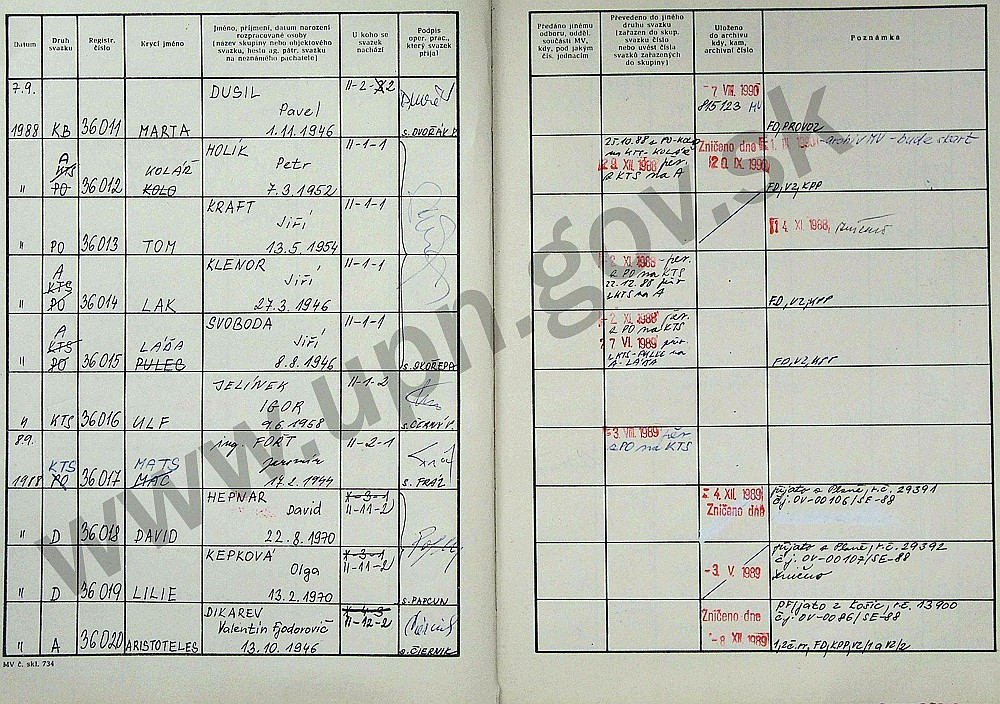 Datum
Druh svazku
Registr. číslo
Krycí jméno
Jméno, příjmení, datum narození
rozpracované osoby
(název skupiny nebo objektového
svazku, heslu ag. pátr. svazku
na neznámého pachatele)
U koho se
svazek
nachází
Podpis
oper. prac.,
který svazek
přijal
Předáno jinému
odboru, odděl.
součásti MV,
kdy, pod jakým
čís. jednacím
Převedeno do jiného
druhu svazku
(zařazen do skup.
svazku číslo
nebo uvést čísla
svazků zařazených
do skupiny)
Uloženo
do archivu
kdy, kam,
archivní číslo
Poznámka
7.9.
DUSIL
II-2-2
7 VIII. 1990
Pavel
815123 MV
1988 KB 36011 MARTA 1.11.1946 s. DVOŘÁK FO, PROVOZ
A HOLÍK II-1-1 25.10.88 z PO-KOLO Zničeno dne archiv MV - bude skart
KTS KOLÁŘ Petr na KTS-KOLÁŘ
" PO 36012 KOLO 7.3.1952 z KTS na A FO, VZ, KPP
KRAFT II-1-1
Jiří 4 XI. 1988
" PO 36013 TOM 13.5.1954
A KLENOR II-1-1 2 XI. 1988
KTS Jiří z PO na KTS
22.12.88
" PO 36014 LAK 27.3.1946 z KTS na A FO, VZ, KPP
A SVOBODA II-1-1 -2 XI. 1988
KTS LÁĎA Jiří z PO na KTS
7 VI. 1989
" PO 36015 PULEC 8.8.1946 s. SKOŘEPA A-LÁĎA
JELÍNEK II-1-2
IGOR
" KTS 36016 ULF 9.6.1958 s. ČERNÝ
8.9. ing. FORT II-2-1 -3. VIII. 1989
KTS MATS Jaromír z PO na KTS
1988 PO 36017 MAC 17.2.1944
HEPNAR X-3-1 4. XII. 1989 přijato z Plzně, r.č. 29391
David II-11-2 Zničeno dne čj. OV-00106/SE-88
" D 36018 DAVID 22.8.1970
KEPKOVÁ X-3-1 přijato z Plzně, r.č. 29392
Olga II-11-2 -3. V. 1989 čj. OV-00107/SE-88
" D 36019 LILIE 13.2.1970 s. PAPCUN
DIKAREV Zničeno dne Přijato z Košic, r.č. 13900
Valentin Fjodorovič II-12-2 čj. OV-0086/SE-88
" A 36020 ARISTOTELES 13.10.1946 s. ČIERNIK -8. XII. 1989
MV č. skl. 734
www.upn.gov.sk